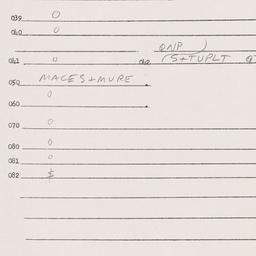 039 0
040 0
QNP)
041 0 042 (S+TUPLT
050 MACES+MURE
060 0
060
070 0
080 0
081 0
082 $